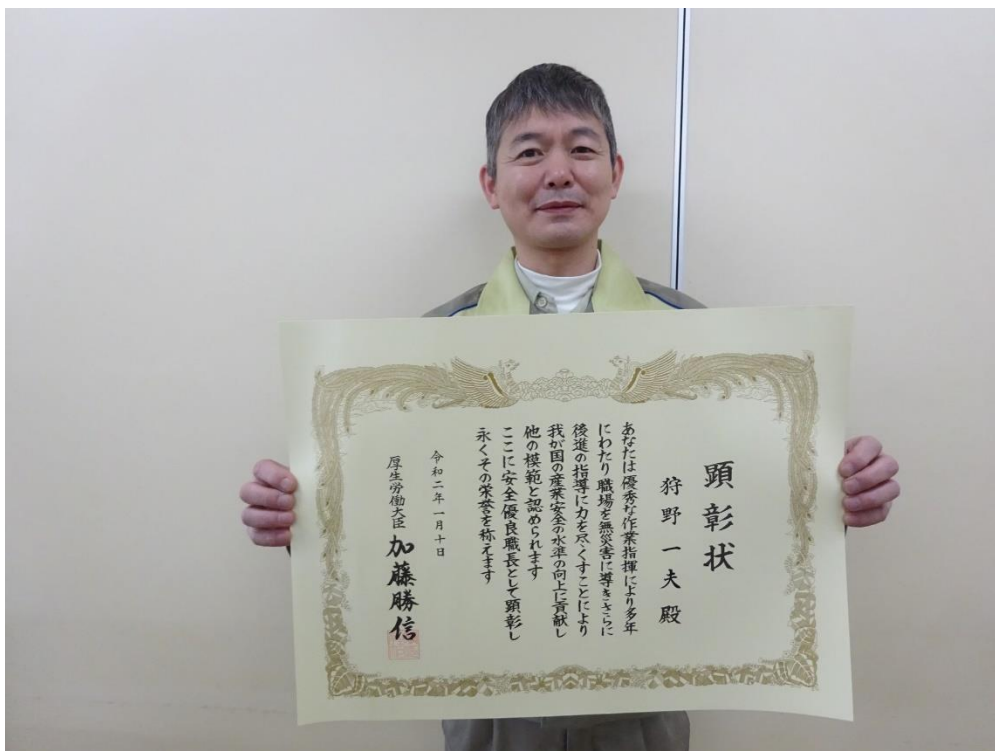 顕彰状
狩野一夫殿
あなたは優秀な作業指揮により多年
にわたり職場を無災害に導きさらに
後進の指導に力を尽くすことにより
我が国の産業安全の水準の向上に貢献し
他の模範と認められます
ここに安全優良職長として顕彰し
永くその栄誉を称えます
令和二年一月十日
厚生労働大臣 加藤勝信